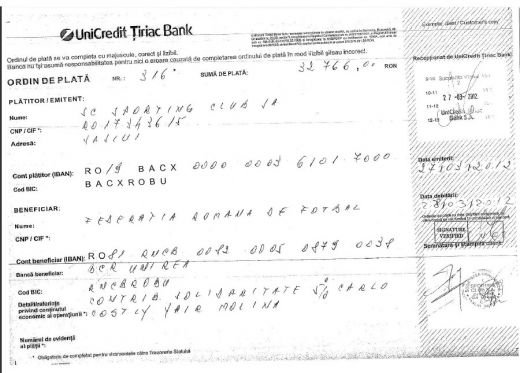 UniCredit Țiriac Bank
Exemplar client / Customer's copy
Ordinul de plată se va completa cu majuscule, corect și lizibil.
Banca nu își asumă responsabilitatea pentru nici o eroare cauzată de completarea ordinului de plată în mod lizibil și/sau incorect.
Recepționat de UniCredit Țiriac Bank
ORDIN DE PLATĂ NR.: 316 SUMĂ DE PLATĂ: 32 766,0 RON
PLĂTITOR / EMITENT:
Nume: SC SPORTING CLUB SA
CNP / CIF *:
Adresă: VASLUI
27 -03- 2012
UniCredit
Bank S.A.
Cont plătitor (IBAN): RO 19 BACX 0000 0003 6101 7000
Cod BIC: BACXROBU
Data emiterii:
27 03 2012
BENEFICIAR:
Data debitării:
28 03 2012
Nume: FEDERATIA ROMANA DE FOTBAL
CNP / CIF *:
SIGNATURE
VERIFIED
Semnătura și ștampila client:
Cont beneficiar (IBAN): RO81 RNCB 0082 0005 0879 0038
Bancă beneficiar: BCR UNIREA
Cod BIC: RNCBROBU
Detalii/referințe
privind conținutul
economic al operațiunii *: CONTRIB SOLIDARITATE 5% CARLO
COSTLY YAIR MOLINA
Numărul de evidență
al plății *:
* Obligatoriu de completat pentru instrumentele către Trezoreria Statului